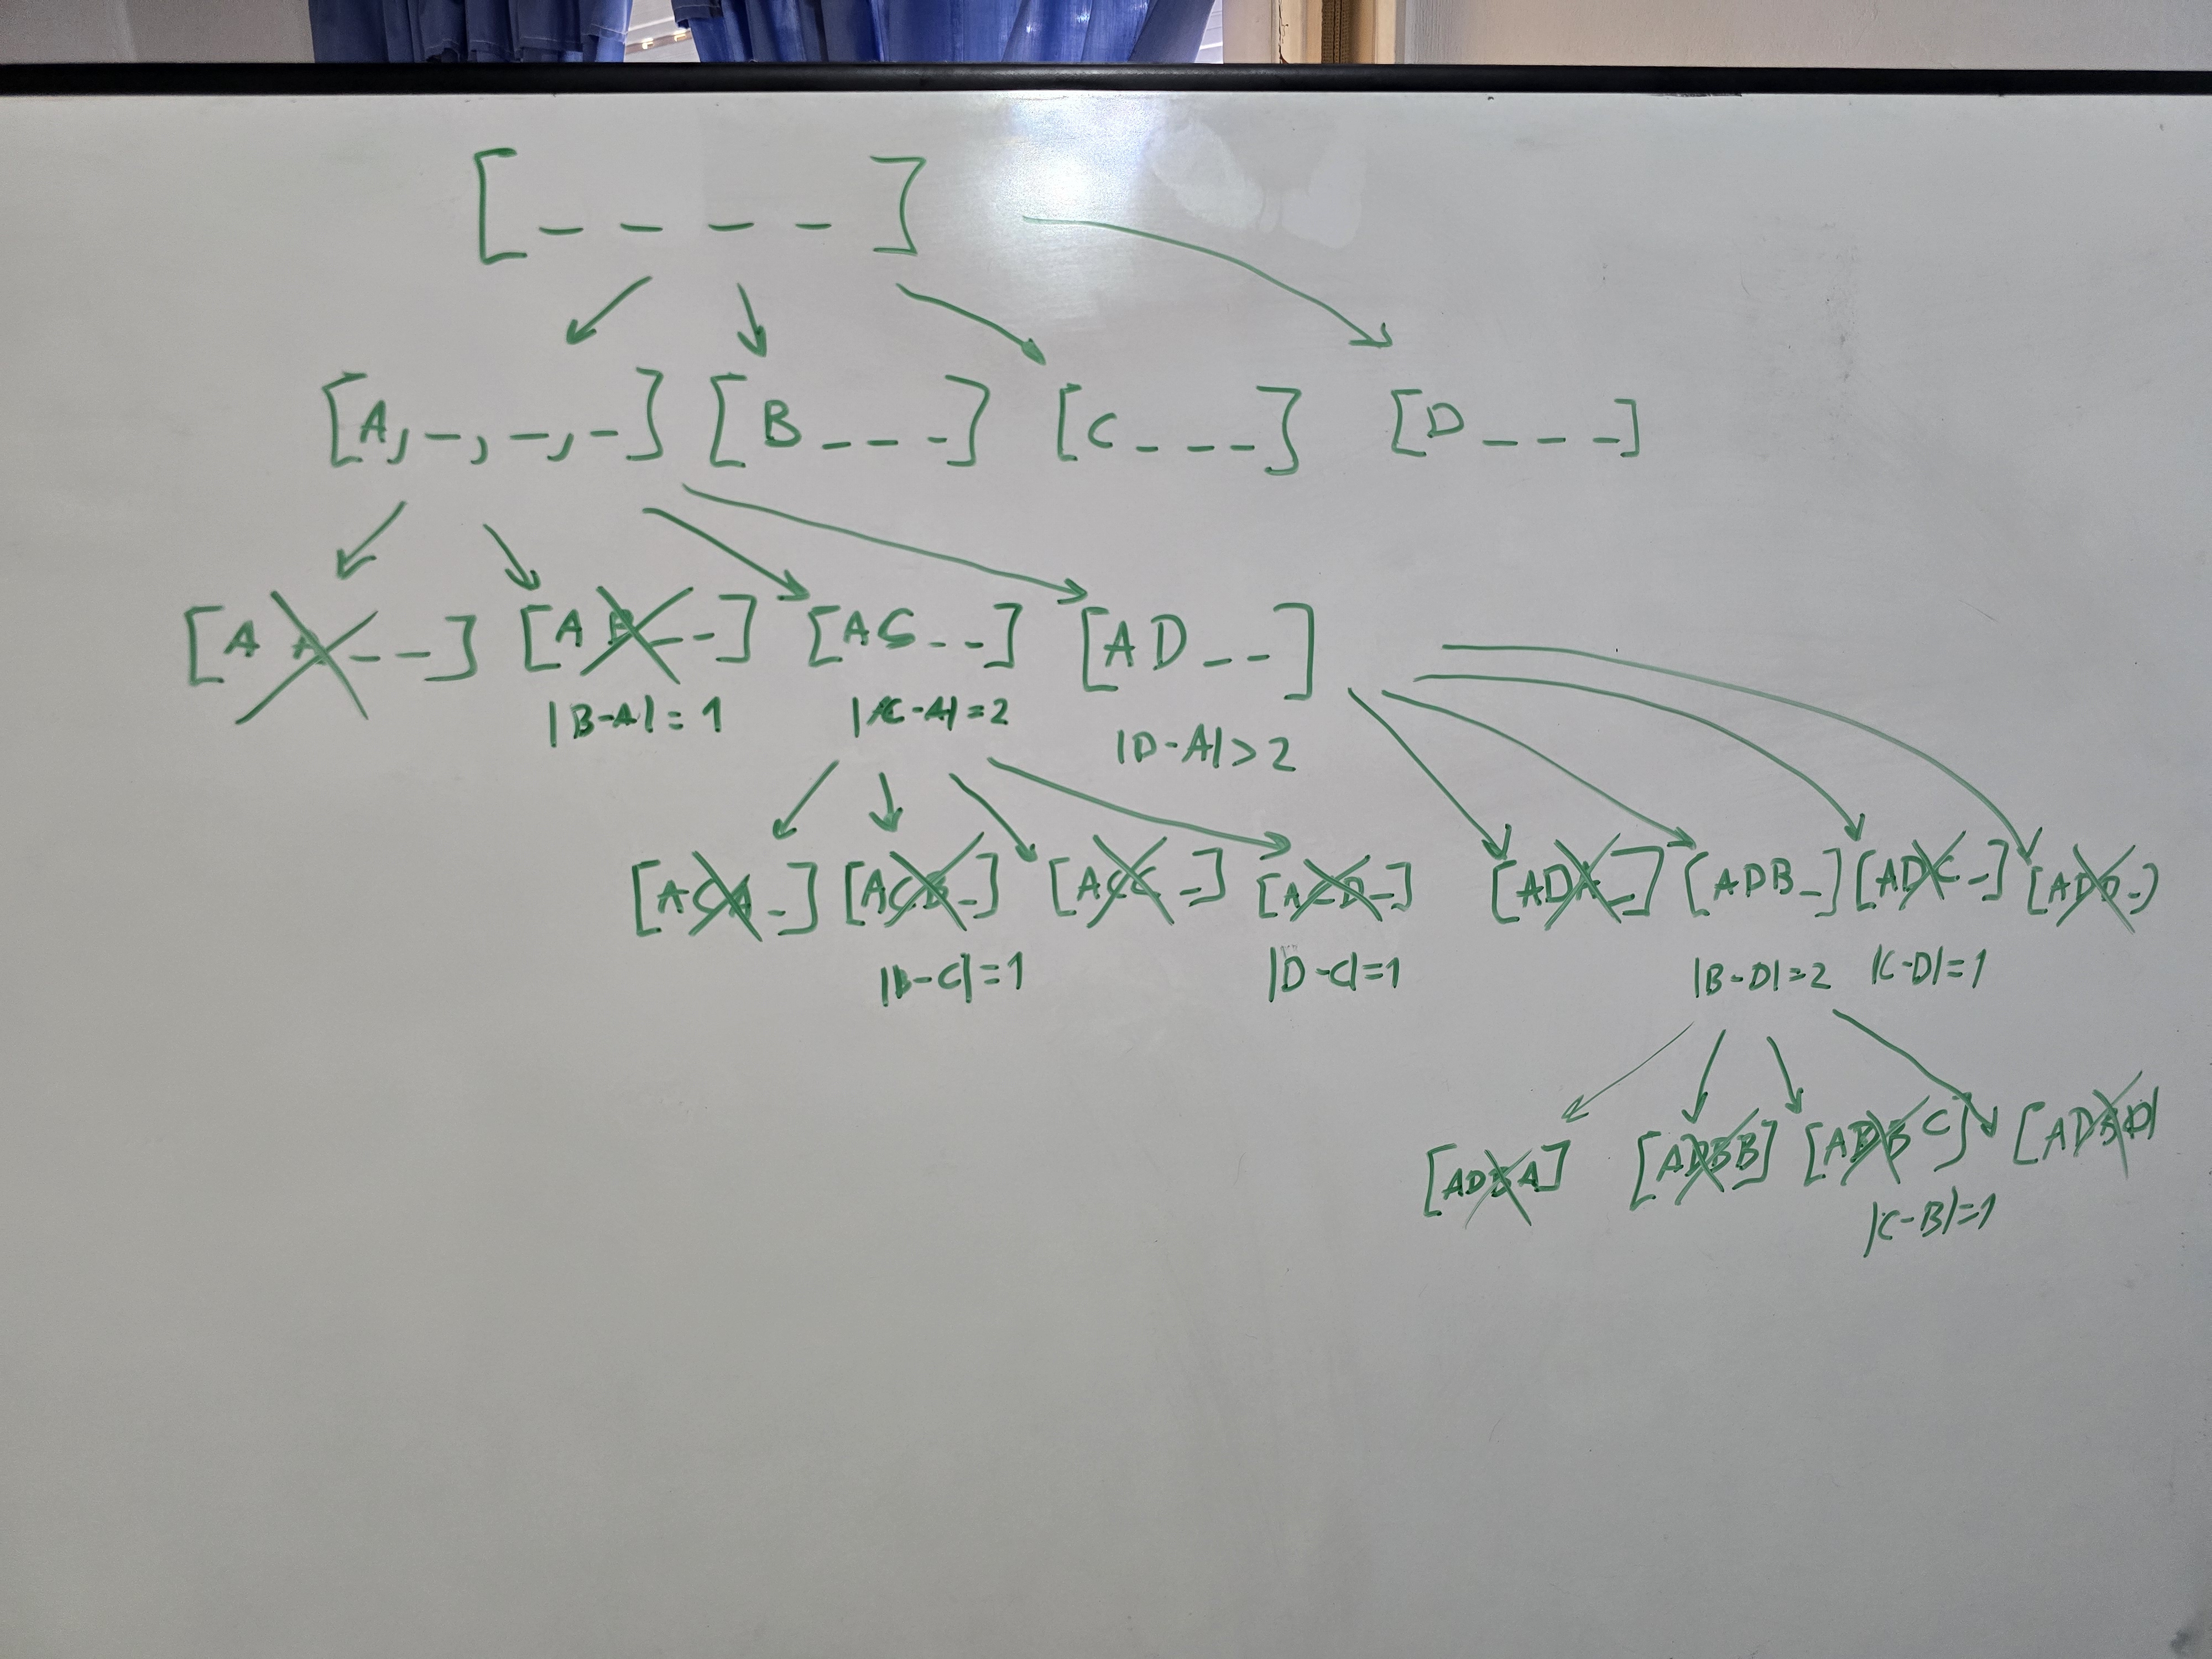 [ _ _ _ _ ]
[A, _, _, _] [B _ _ _] [C _ _ _] [D _ _ _]
[A A _ _] [A B _ _] [AC _ _] [AD _ _]
|B-A| = 1 |C-A| = 2 |D-A| > 2
[ACA _] [ACB _] [ACC _] [ACD _] [ADA _] [ADB _] [ADC _] [ADD _]
|B-C| = 1 |D-C| = 1 |B-D| = 2 |C-D| = 1
[ADBA] [ADBB] [ADBC] [ADBD]
|C-B| = 1